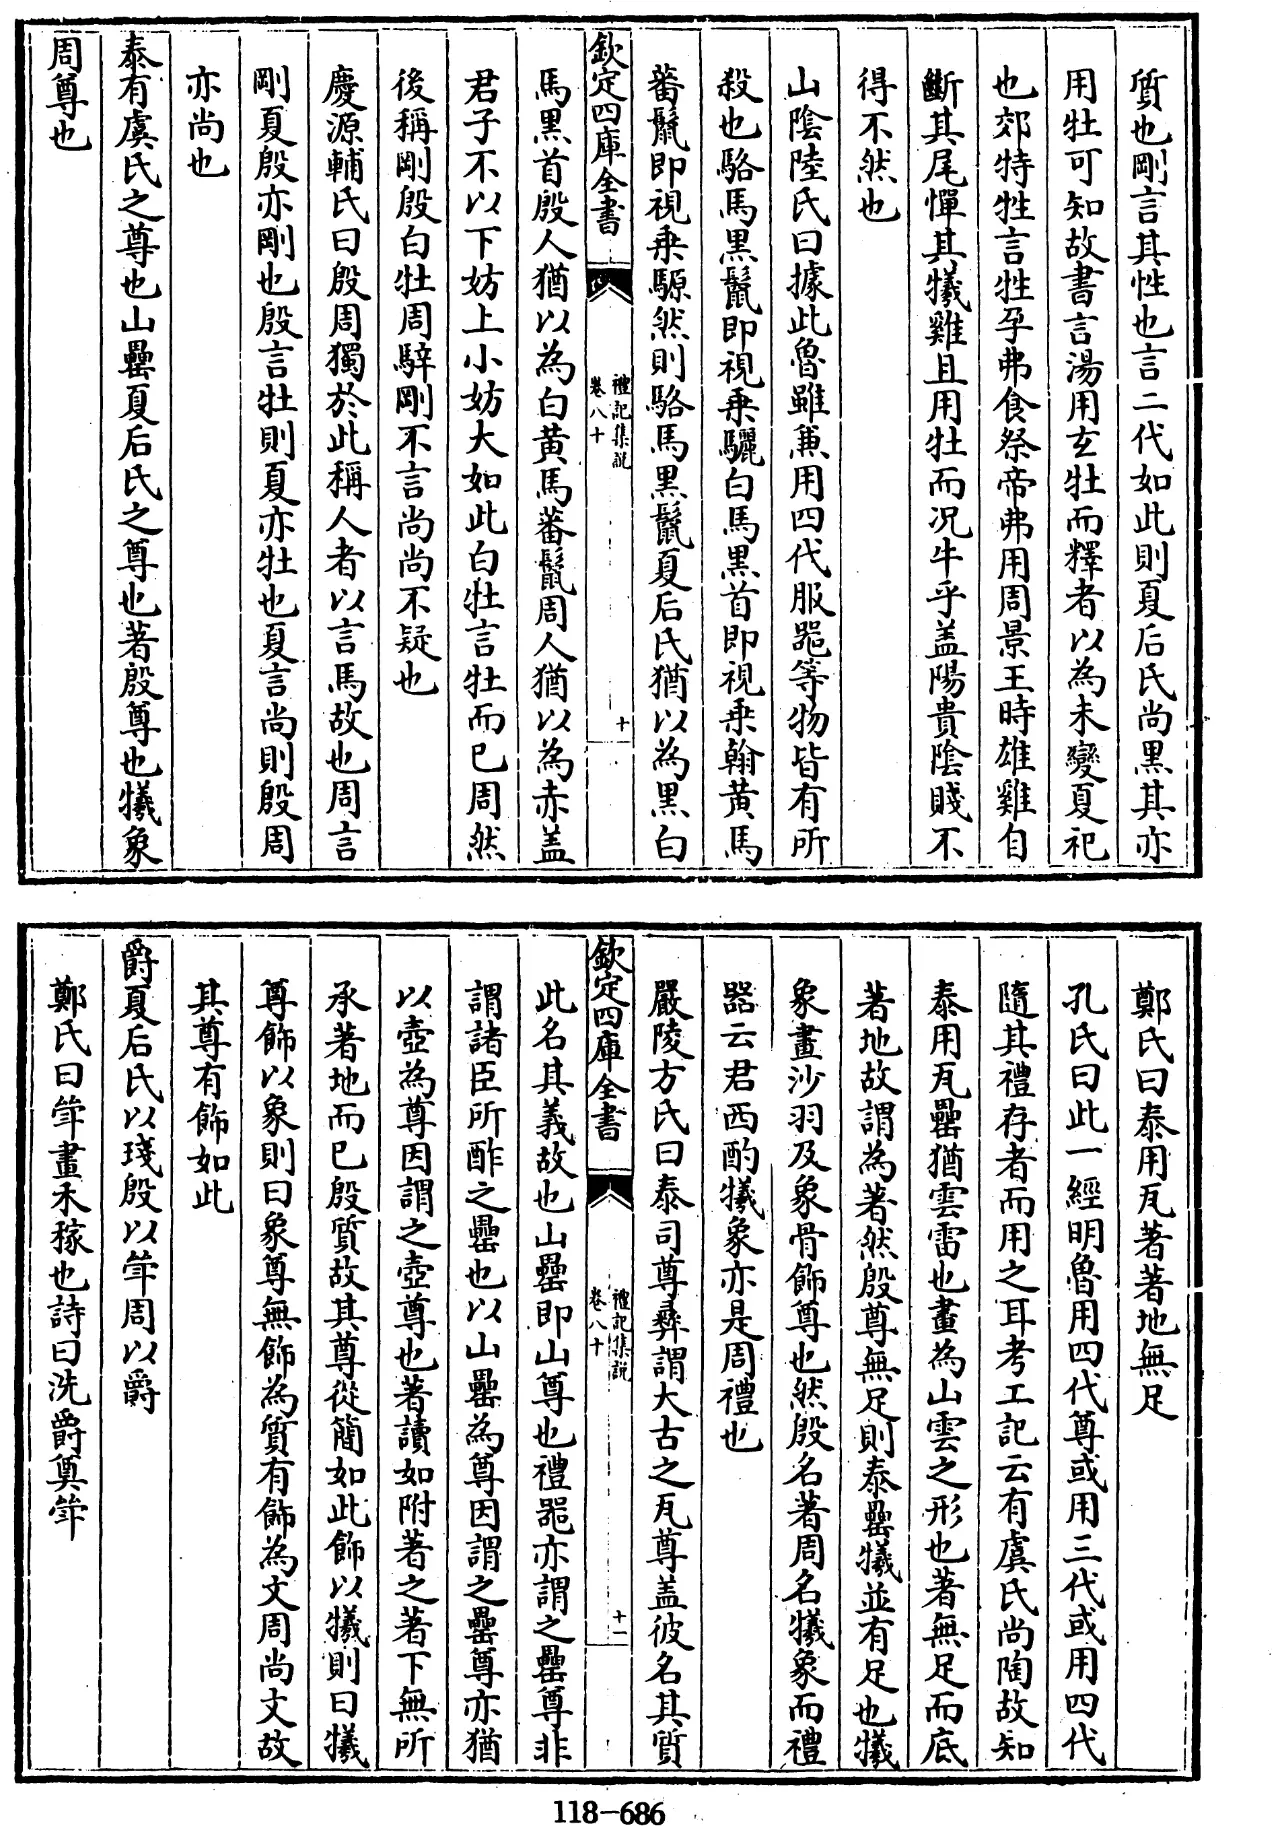 質也剛言其性也言二代如此則夏后氏尚黑其亦
用牡可知故書言湯用玄牡而釋者以為未變夏祀
也郊特牲言牲孕弗食祭帝弗用周景王時雄雞自
斷其尾憚其犧雞且用牡而况牛乎盖陽貴陰賤不
得不然也
山陰陸氏曰據此魯雖兼用四代服器等物皆有所
殺也駱馬黑鬛即視乗驪白馬黑首即視乗翰黄馬
蕃鬛即視乗騵然則駱馬黒鬛夏后氏猶以為黒白
欽定四庫全書
禮記集說
卷八十
十
馬黒首殷人猶以為白黄馬蕃鬛周人猶以為赤盖
君子不以下妨上小妨大如此白牡言牡而已周然
後稱剛殷白牡周騂剛不言尚尚不疑也
慶源輔氏曰殷周獨於此稱人者以言馬故也周言
剛夏殷亦剛也殷言牡則夏亦牡也夏言尚則殷周
亦尚也
泰有虞氏之尊也山罍夏后氏之尊也著殷尊也犧象
周尊也
鄭氏曰泰用瓦著著地無足
孔氏曰此一經明魯用四代尊或用三代或用四代
隨其禮存者而用之耳考工記云有虞氏尚陶故知
泰用瓦罍猶雲雷也畫為山雲之形也著無足而底
著地故謂為著然殷尊無足則泰罍犧並有足也犧
象畫沙羽及象骨飾尊也然殷名著周名犧象而禮
器云君西酌犧象亦是周禮也
嚴陵方氏曰泰司尊彞謂大古之瓦尊盖彼名其質
欽定四庫全書
禮記集說
卷八十
十一
此名其義故也山罍即山尊也禮器亦謂之罍尊非
謂諸臣所酢之罍也以山罍為尊因謂之罍尊亦猶
以壺為尊因謂之壺尊也著讀如附著之著下無所
承著地而已殷質故其尊從簡如此飾以犧則曰犧
尊飾以象則曰象尊無飾為質有飾為文周尚文故
其尊有飾如此
爵夏后氏以琖殷以斝周以爵
鄭氏曰斝畫禾稼也詩曰洗爵奠斝
118-686